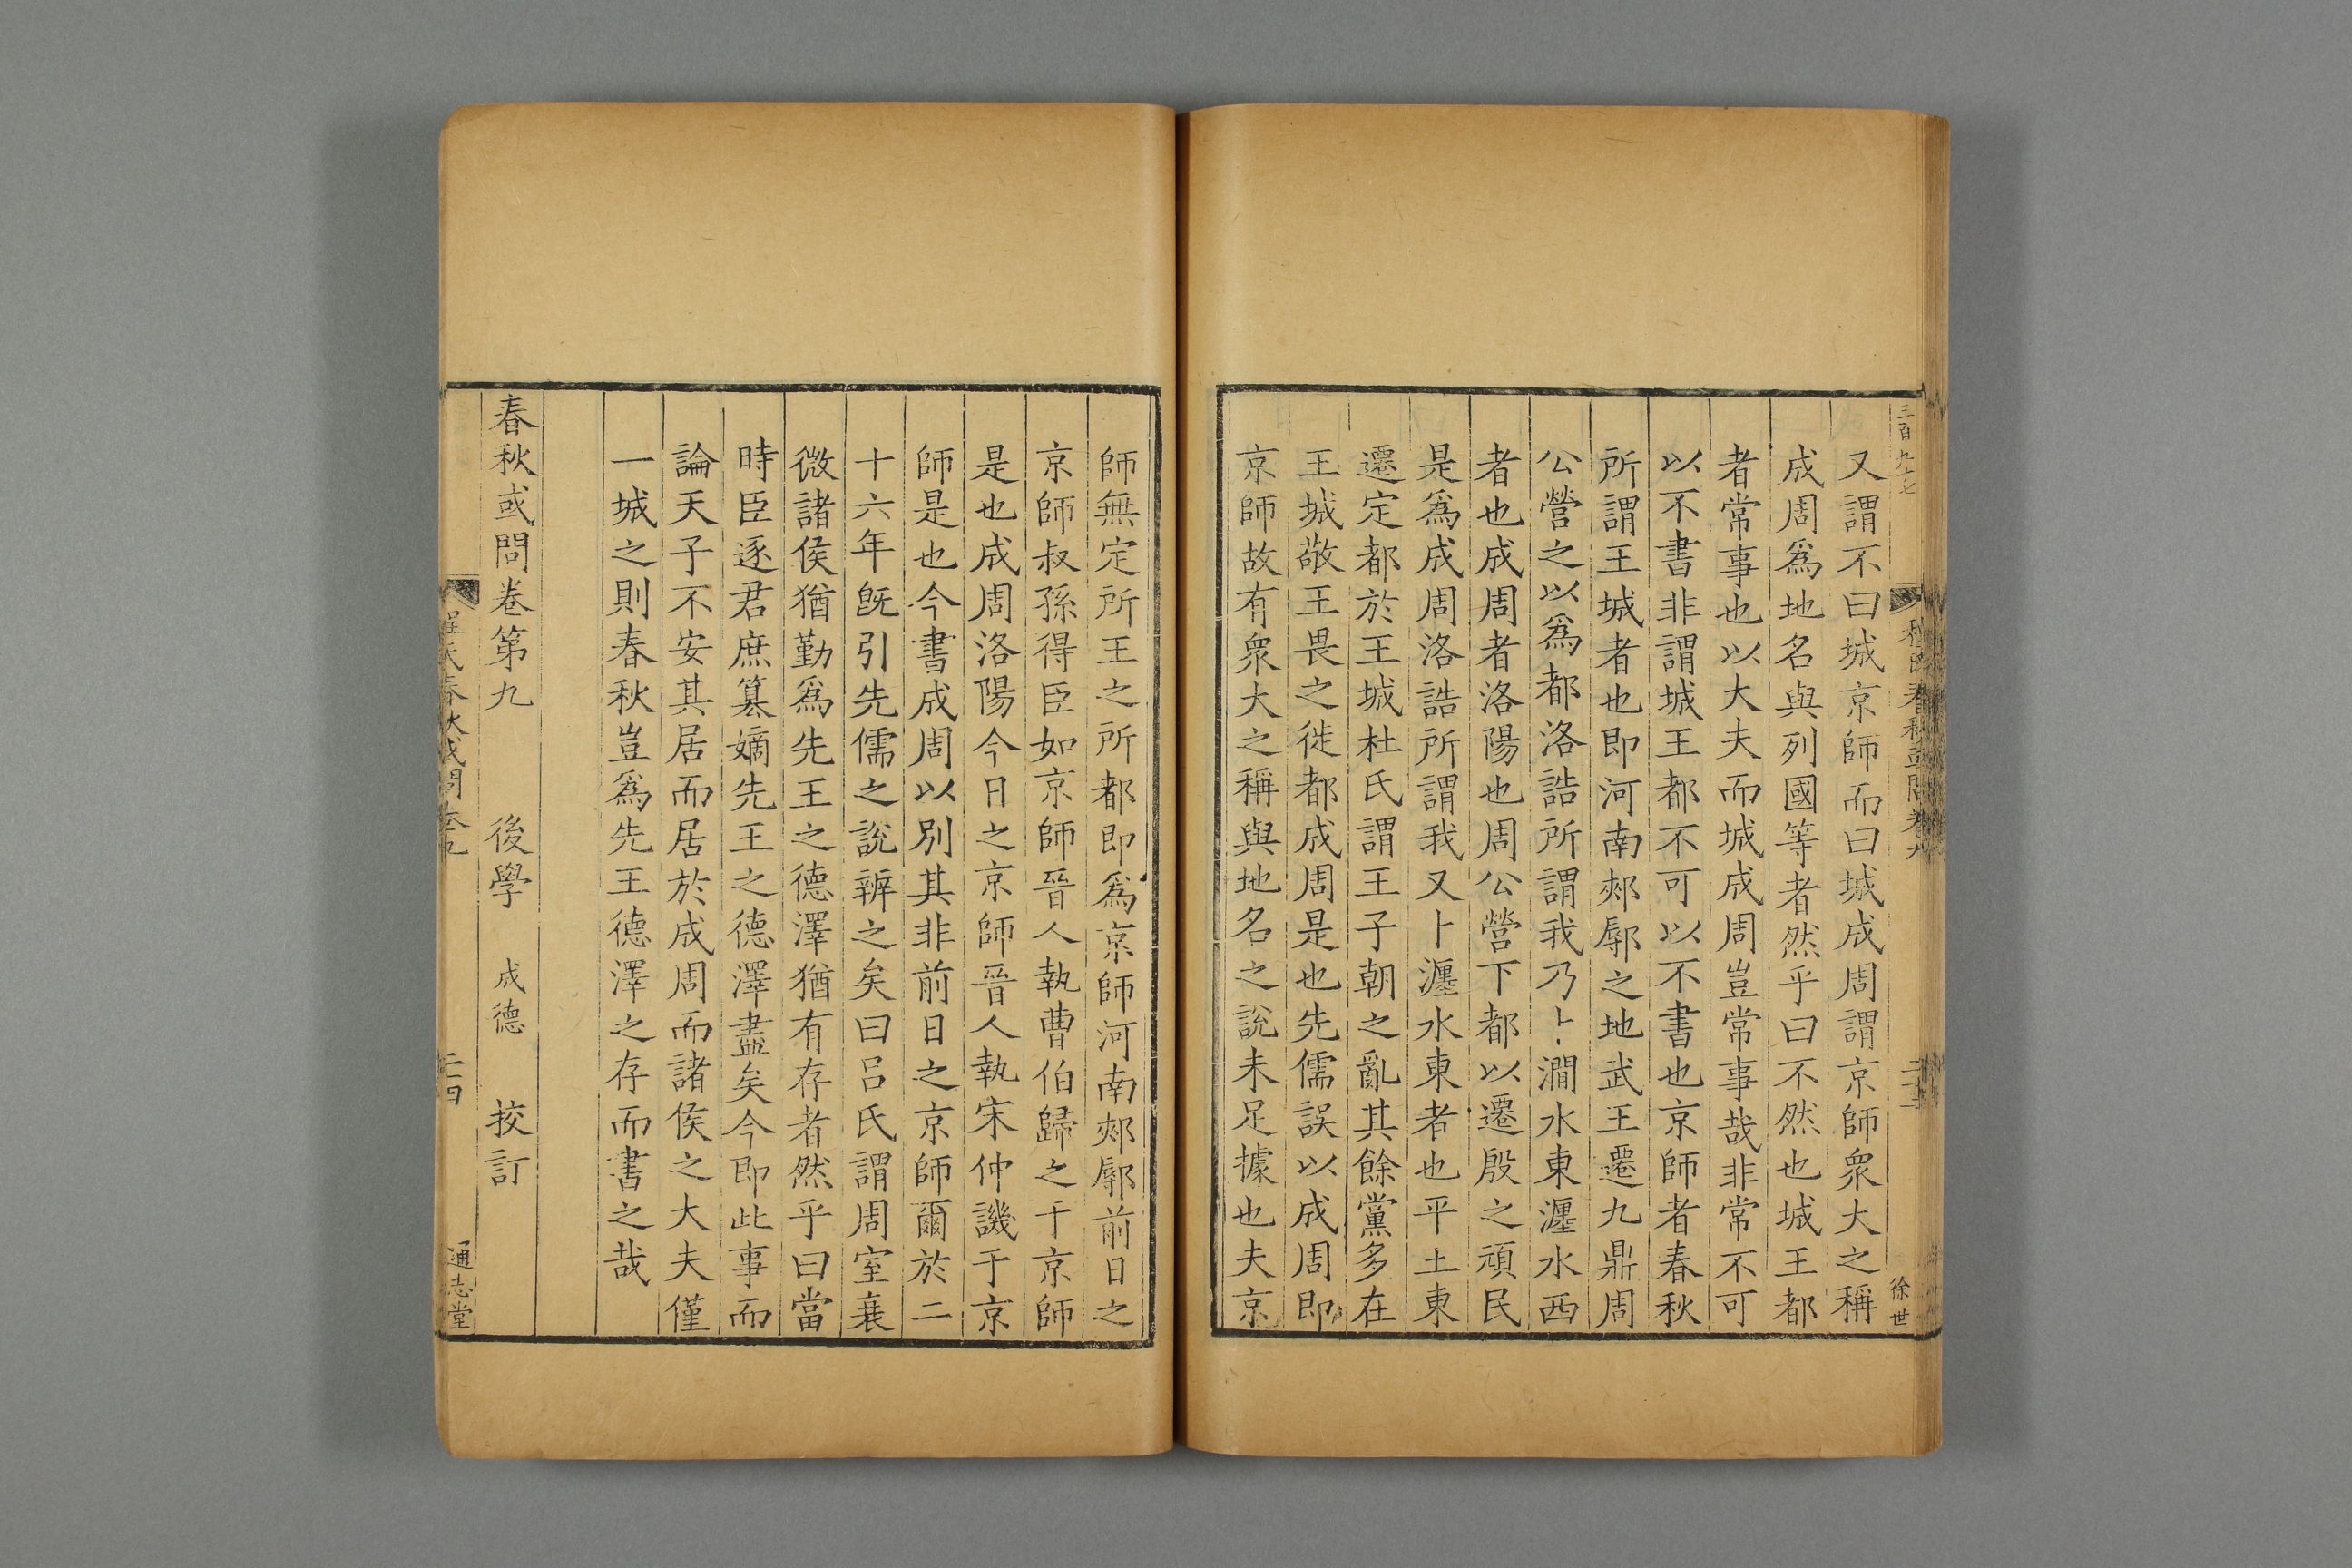 三百九十七
徐世
又謂不曰城京師而曰城成周謂京師衆大之稱
成周爲地名與列國等者然乎曰不然也城王都
者常事也以大夫而城成周豈常事哉非常不可
以不書非謂城王都不可以不書也京師者春秋
所謂王城者也即河南郟鄏之地武王遷九鼎周
公營之以爲都洛誥所謂我乃卜澗水東瀍水西
者也成周者洛陽也周公營下都以遷殷之頑民
是爲成周洛誥所謂我又卜瀍水東者也平土東
遷定都於王城杜氏謂王子朝之亂其餘黨多在
王城敬王畏之徙都成周是也先儒誤以成周即
京師故有衆大之稱與地名之說未足據也夫京
師無定所王之所都即爲京師河南郟鄏前日之
京師叔孫得臣如京師晉人執曹伯歸之于京師
是也成周洛陽今日之京師晉人執宋仲譏于京
師是也今書成周以別其非前日之京師爾於二
十六年旣引先儒之說辨之矣曰呂氏謂周室衰
微諸侯猶勤爲先王之德澤猶有存者然乎曰當
時臣逐君庶簒嫡先王之德澤盡矣今即此事而
論天子不安其居而居於成周而諸侯之大夫僅
一城之則春秋豈爲先王德澤之存而書之哉
春秋或問卷第九 後學 成德 挍訂
程氏春秋或問卷九 二十四 通志堂